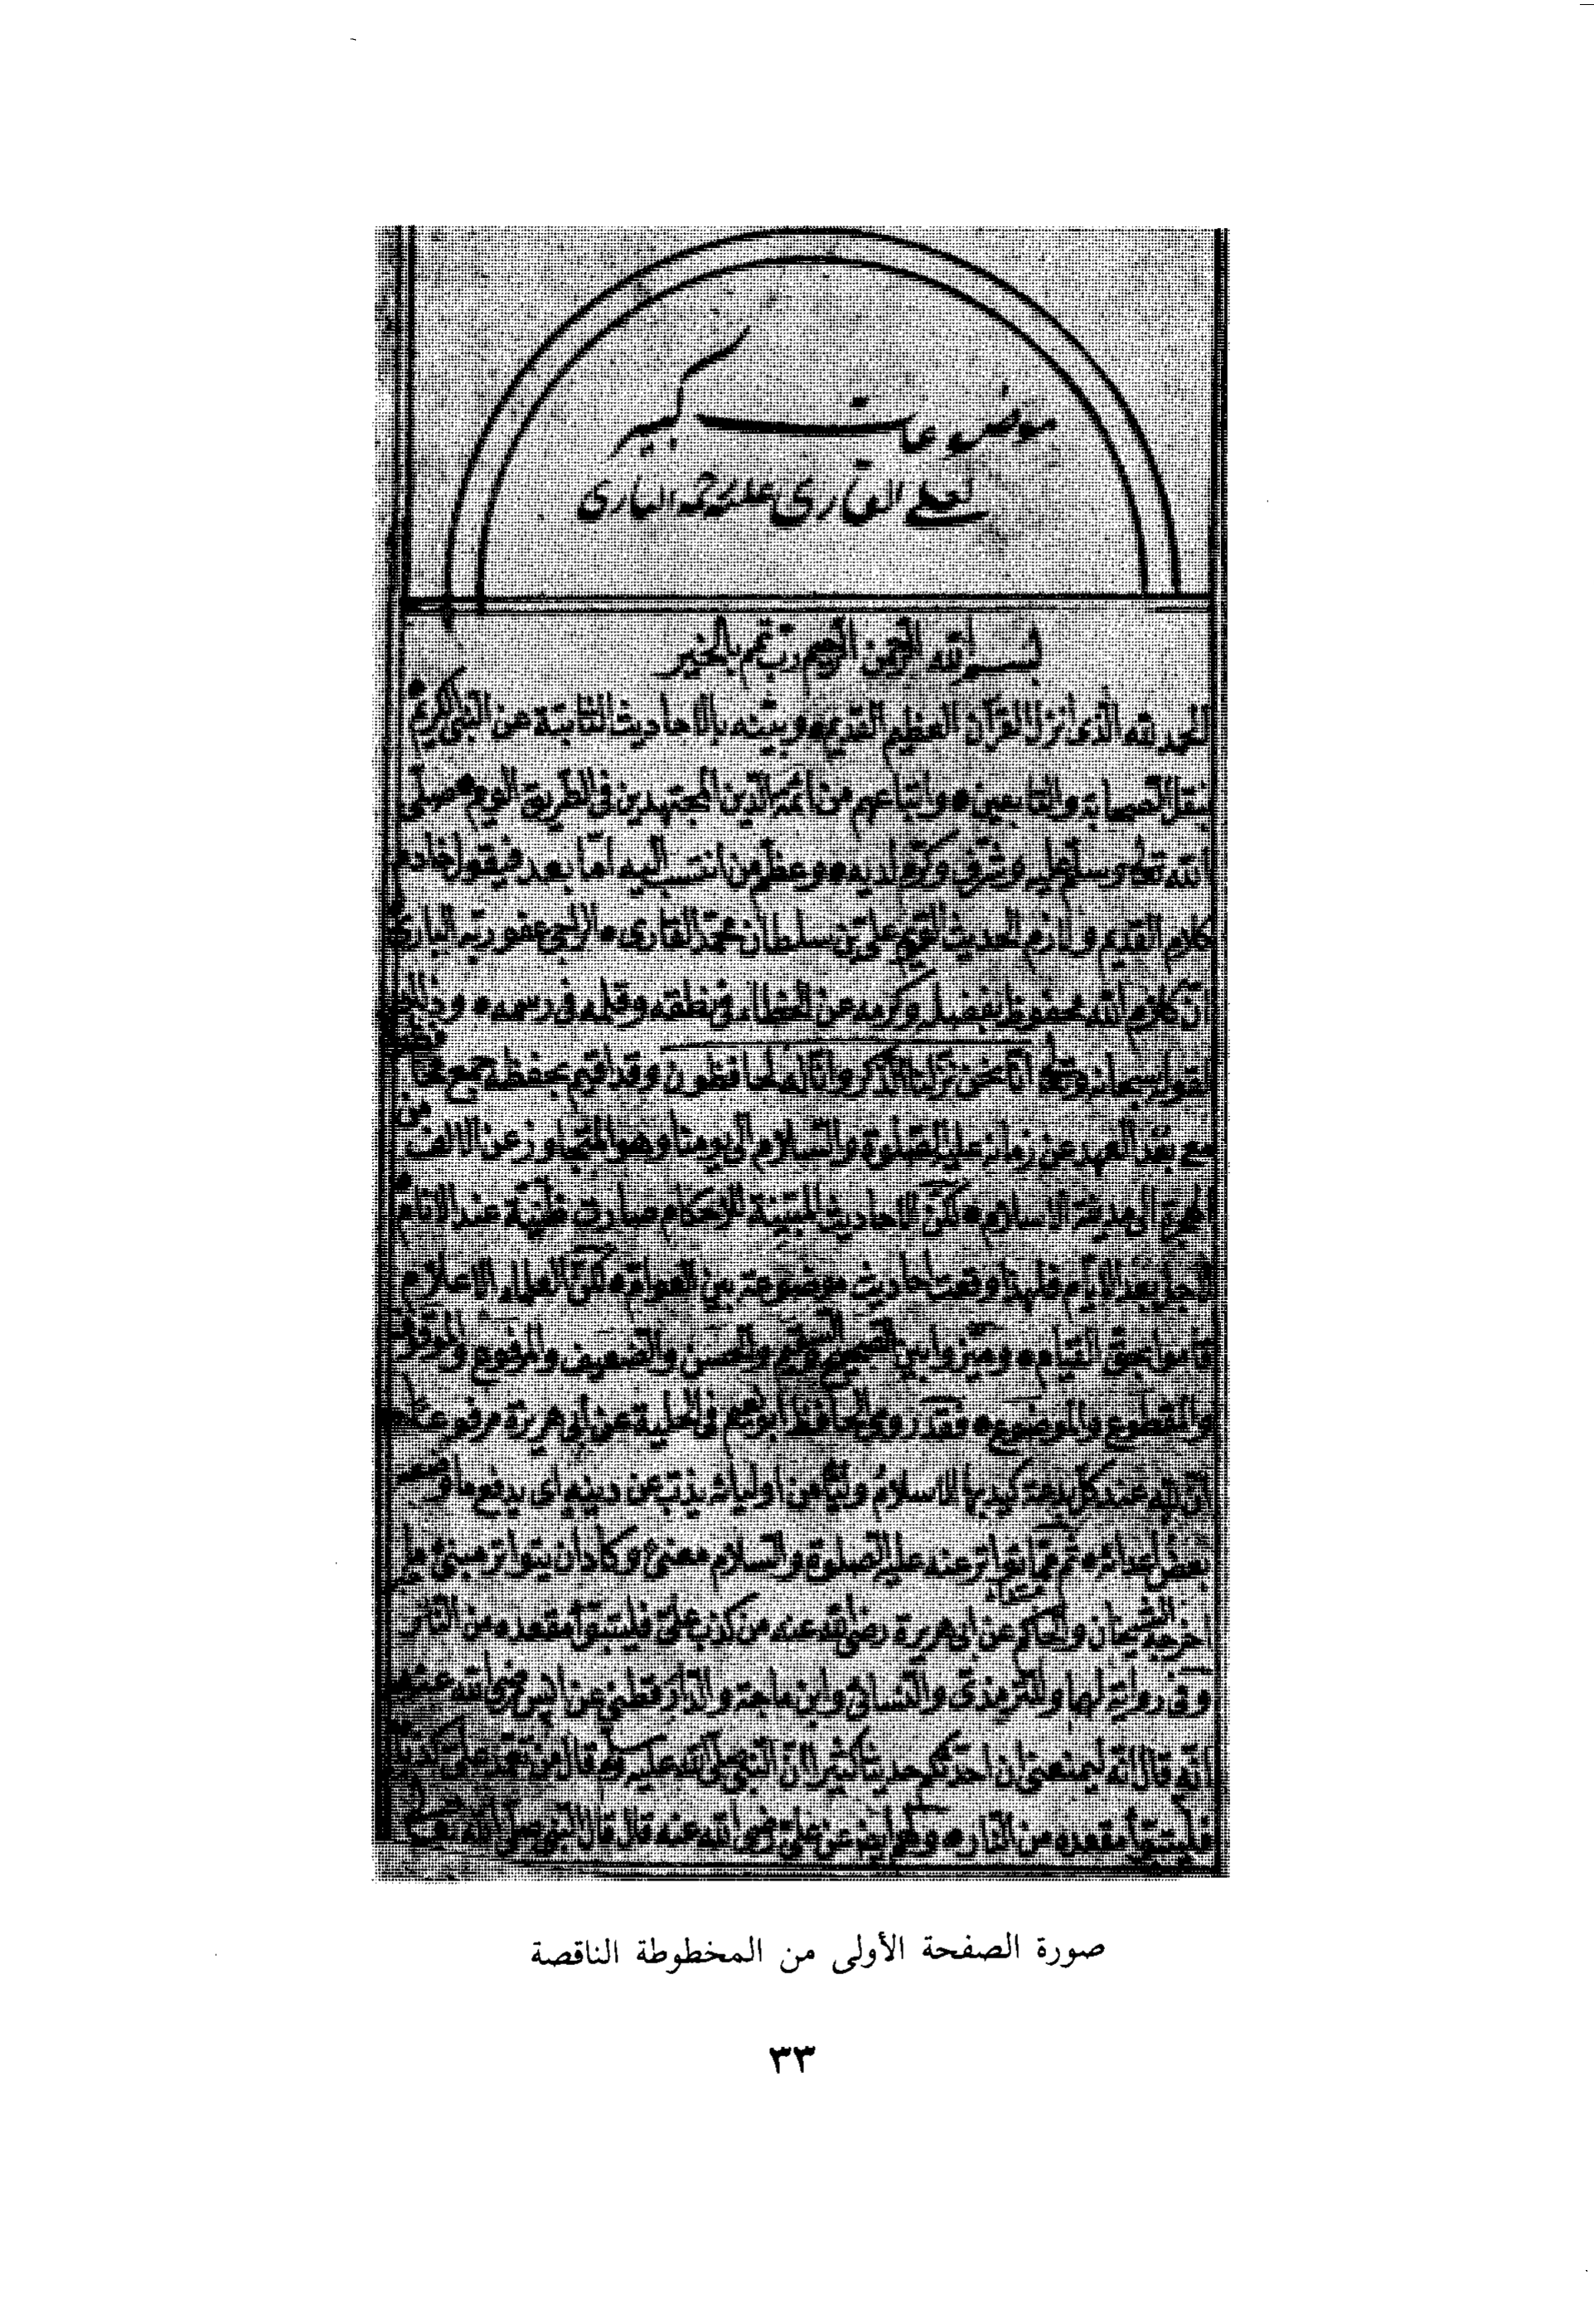 موضوعات كبير
لعلي القاري عليه رحمة الباري
بسم الله الرحمن الرحيم رب تمم بالخير
الحمد لله الذي انزل القرآن العظيم القديم وبينه بالاحاديث الثابتة عن النبي الكريم
بنقل الصحابة والتابعين واتباعهم من ائمة الدين المجتهدين في الطريق القويم صلى
الله تعالى وسلم عليه وشرف وكرم لديه وعظم من انتسب اليه اما بعد فيقول خادم
كلام القديم ولازم الحديث القويم علي بن سلطان محمد القاري الراجي عفو ربه الباري
ان كلام الله محفوظ بفضله وكرمه عن الخطاء في نطقه وقلمه في رسمه وذلك
لقوله سبحانه وتعالى انا نحن نزلنا الذكر وانا له لحافظون وقد اقيم بحفظه جمع
مع بعد العهد عن زمانه عليه الصلوة والسلام الى يومنا وهو المتجاوز عن الالف من
الهجرة الى مدينة الاسلام لكن الاحاديث المبينة للاحكام صارت ظنية عند الانام
لاجل بعد الايام فلهذا وقعت احاديث موضوعة بين العوام لكن العلماء الاعلام
قاموا بحق القيام وميزوا بين الصحيح السقيم والحسن والضعيف والمرفوع والموقوف
والمقطوع والموضوع فقد روى الحافظ ابو نعيم في الحلية عن ابي هريرة مرفوعا
ان لله عند كل بدعة كيد بها الاسلام وليا من اوليائه يذب عن دينه اى يدفع ما وضعه
بعض اعدائه ثم مما تواتر عنه عليه الصلوة والسلام معنى وكاد ان يتواتر مبنى ما
اخرجه الشيخان والحاكم عن ابي هريرة رضي الله عنه من كذب علي متعمدا فليتبوأ مقعده من النار
وفي رواية لهما وللترمذي والنسائي وابن ماجة والدارقطني عن انس رضي الله عنه
انه قال انه ليمنعني ان احدثكم حديثا كثيرا ان النبي صلى الله عليه وسلم قال من تعمد علي كذبا
فليتبوأ مقعده من النار ولهم ايضا عن علي رضي الله عنه قال قال النبي صلى الله
صورة الصفحة الأولى من المخطوطة الناقصة
٣٣